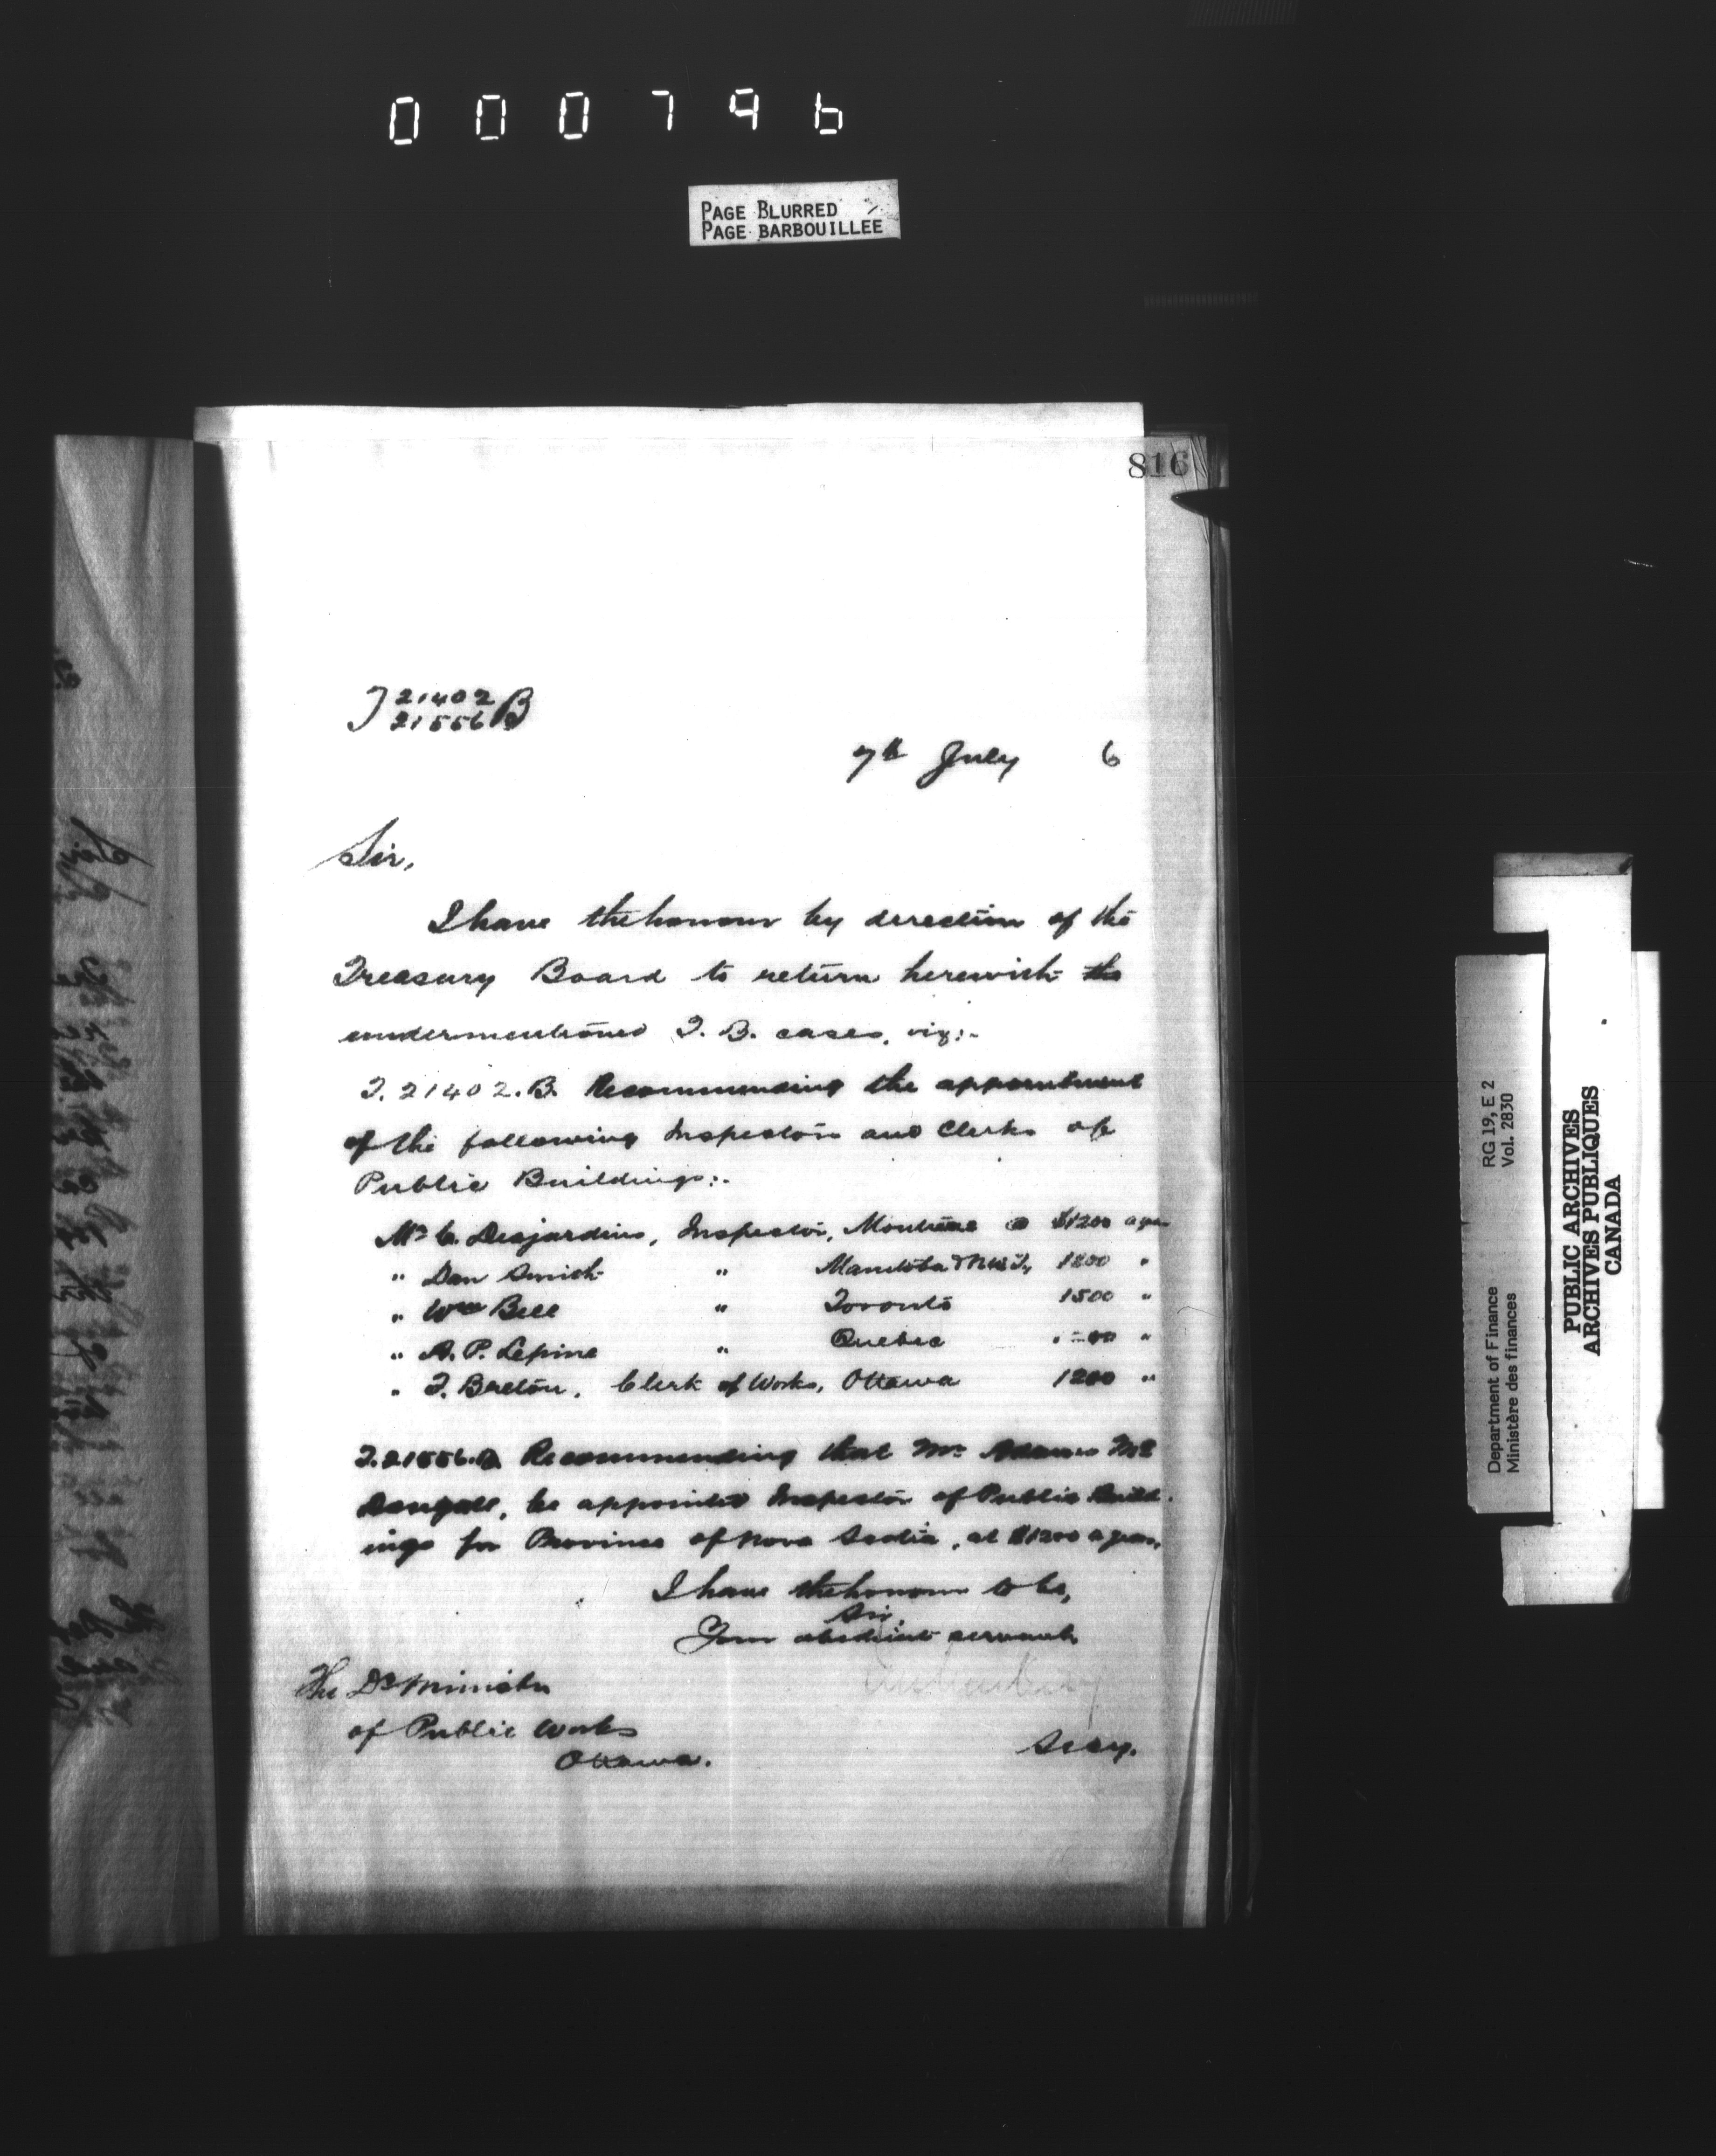 000796
PAGE BLURRED
PAGE BARBOUILLEE
816
T 21402
21556 B
7th July 6
Sir,
I have the honour by direction of the
Treasury Board to return herewith the
undermentioned T. B. cases, viz:-
T. 21402. B. Recommending the appointment
of the following Inspectors and Clerks of
Public Buildings:-
Mr C. Desjardins, Inspector, Montreal @ $1200 a year
" Dan Smith " Manitoba & N.W.T., 1800 "
" Wm Bell " Toronto 1500 "
" A. P. Lepine " Quebec "
" T. Breton, Clerk of Works, Ottawa 1200 "
T. 21556. B. Recommending that Mr Mc
Dougall, be appointed Inspector of Public Build-
ings for Province of Nova Scotia, at $1200 a year,
I have the honour to be,
Sir,
Your obedient servant,
The Dy Minister
of Public Works
Ottawa.
Secy.
Department of Finance RG 19, E 2
Ministère des finances Vol. 2830
PUBLIC ARCHIVES
ARCHIVES PUBLIQUES
CANADA